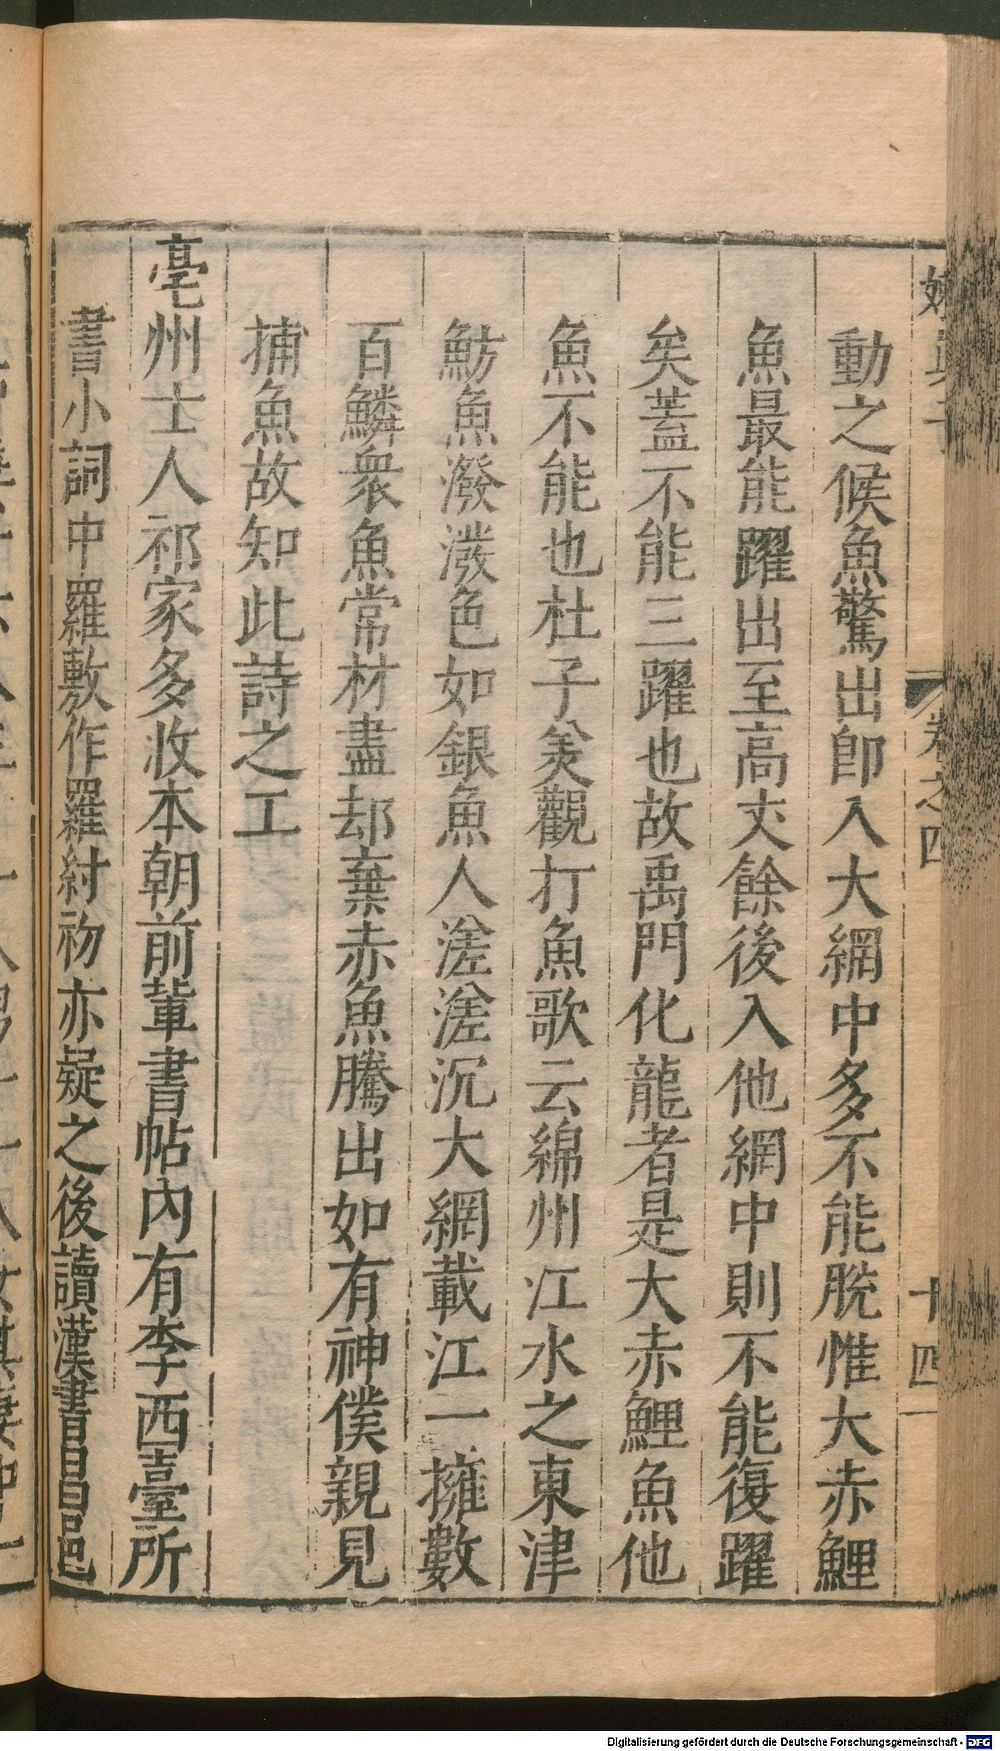 動之候魚驚出卽入大網中多不能脫惟大赤鯉
魚最能躍出至高𠀋餘後入他網中則不能復躍
矣蓋不能三躍也故禹門化龍者是大赤鯉魚他
魚不能也杜子美觀打魚歌云綿州江水之東津
魴魚潑潑色如銀魚人漾漾沉大網載江一擁數
百鱗衆魚常材盡却棄赤魚騰出如有神僕親見
捕魚故知此詩之工
亳州士人祁家多收本朝前輩書帖內有李西臺所
書小詞中羅敷作羅紂初亦疑之後讀漢書昌邑
卷之四
十四
Digitalisierung gefördert durch die Deutsche Forschungsgemeinschaft - DFG